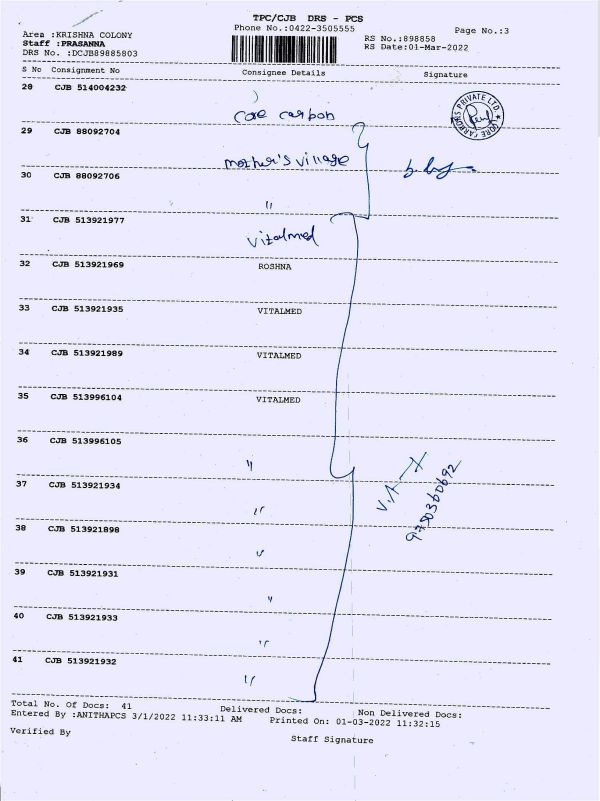 TPC/CJB DRS - PCS
Phone No.:0422-3505555
Page No.:3
Area :KRISHNA COLONY
Staff :PRASANNA
DRS No. :DCJB89885803
RS No.:898858
RS Date:01-Mar-2022
S No Consignment No Consignee Details Signature
28 CJB 514004232
core carbon
29 CJB 88092704
mother's village
30 CJB 88092706
"
31 CJB 513921977
vitalmed
32 CJB 513921969 ROSHNA
33 CJB 513921935 VITALMED
34 CJB 513921989 VITALMED
35 CJB 513996104 VITALMED
36 CJB 513996105
"
37 CJB 513921934
"
38 CJB 513921898
"
39 CJB 513921931
"
40 CJB 513921933
"
41 CJB 513921932
"
Total No. Of Docs: 41 Delivered Docs: Non Delivered Docs:
Entered By :ANITHAPCS 3/1/2022 11:33:11 AM Printed On: 01-03-2022 11:32:15
Verified By
Staff Signature